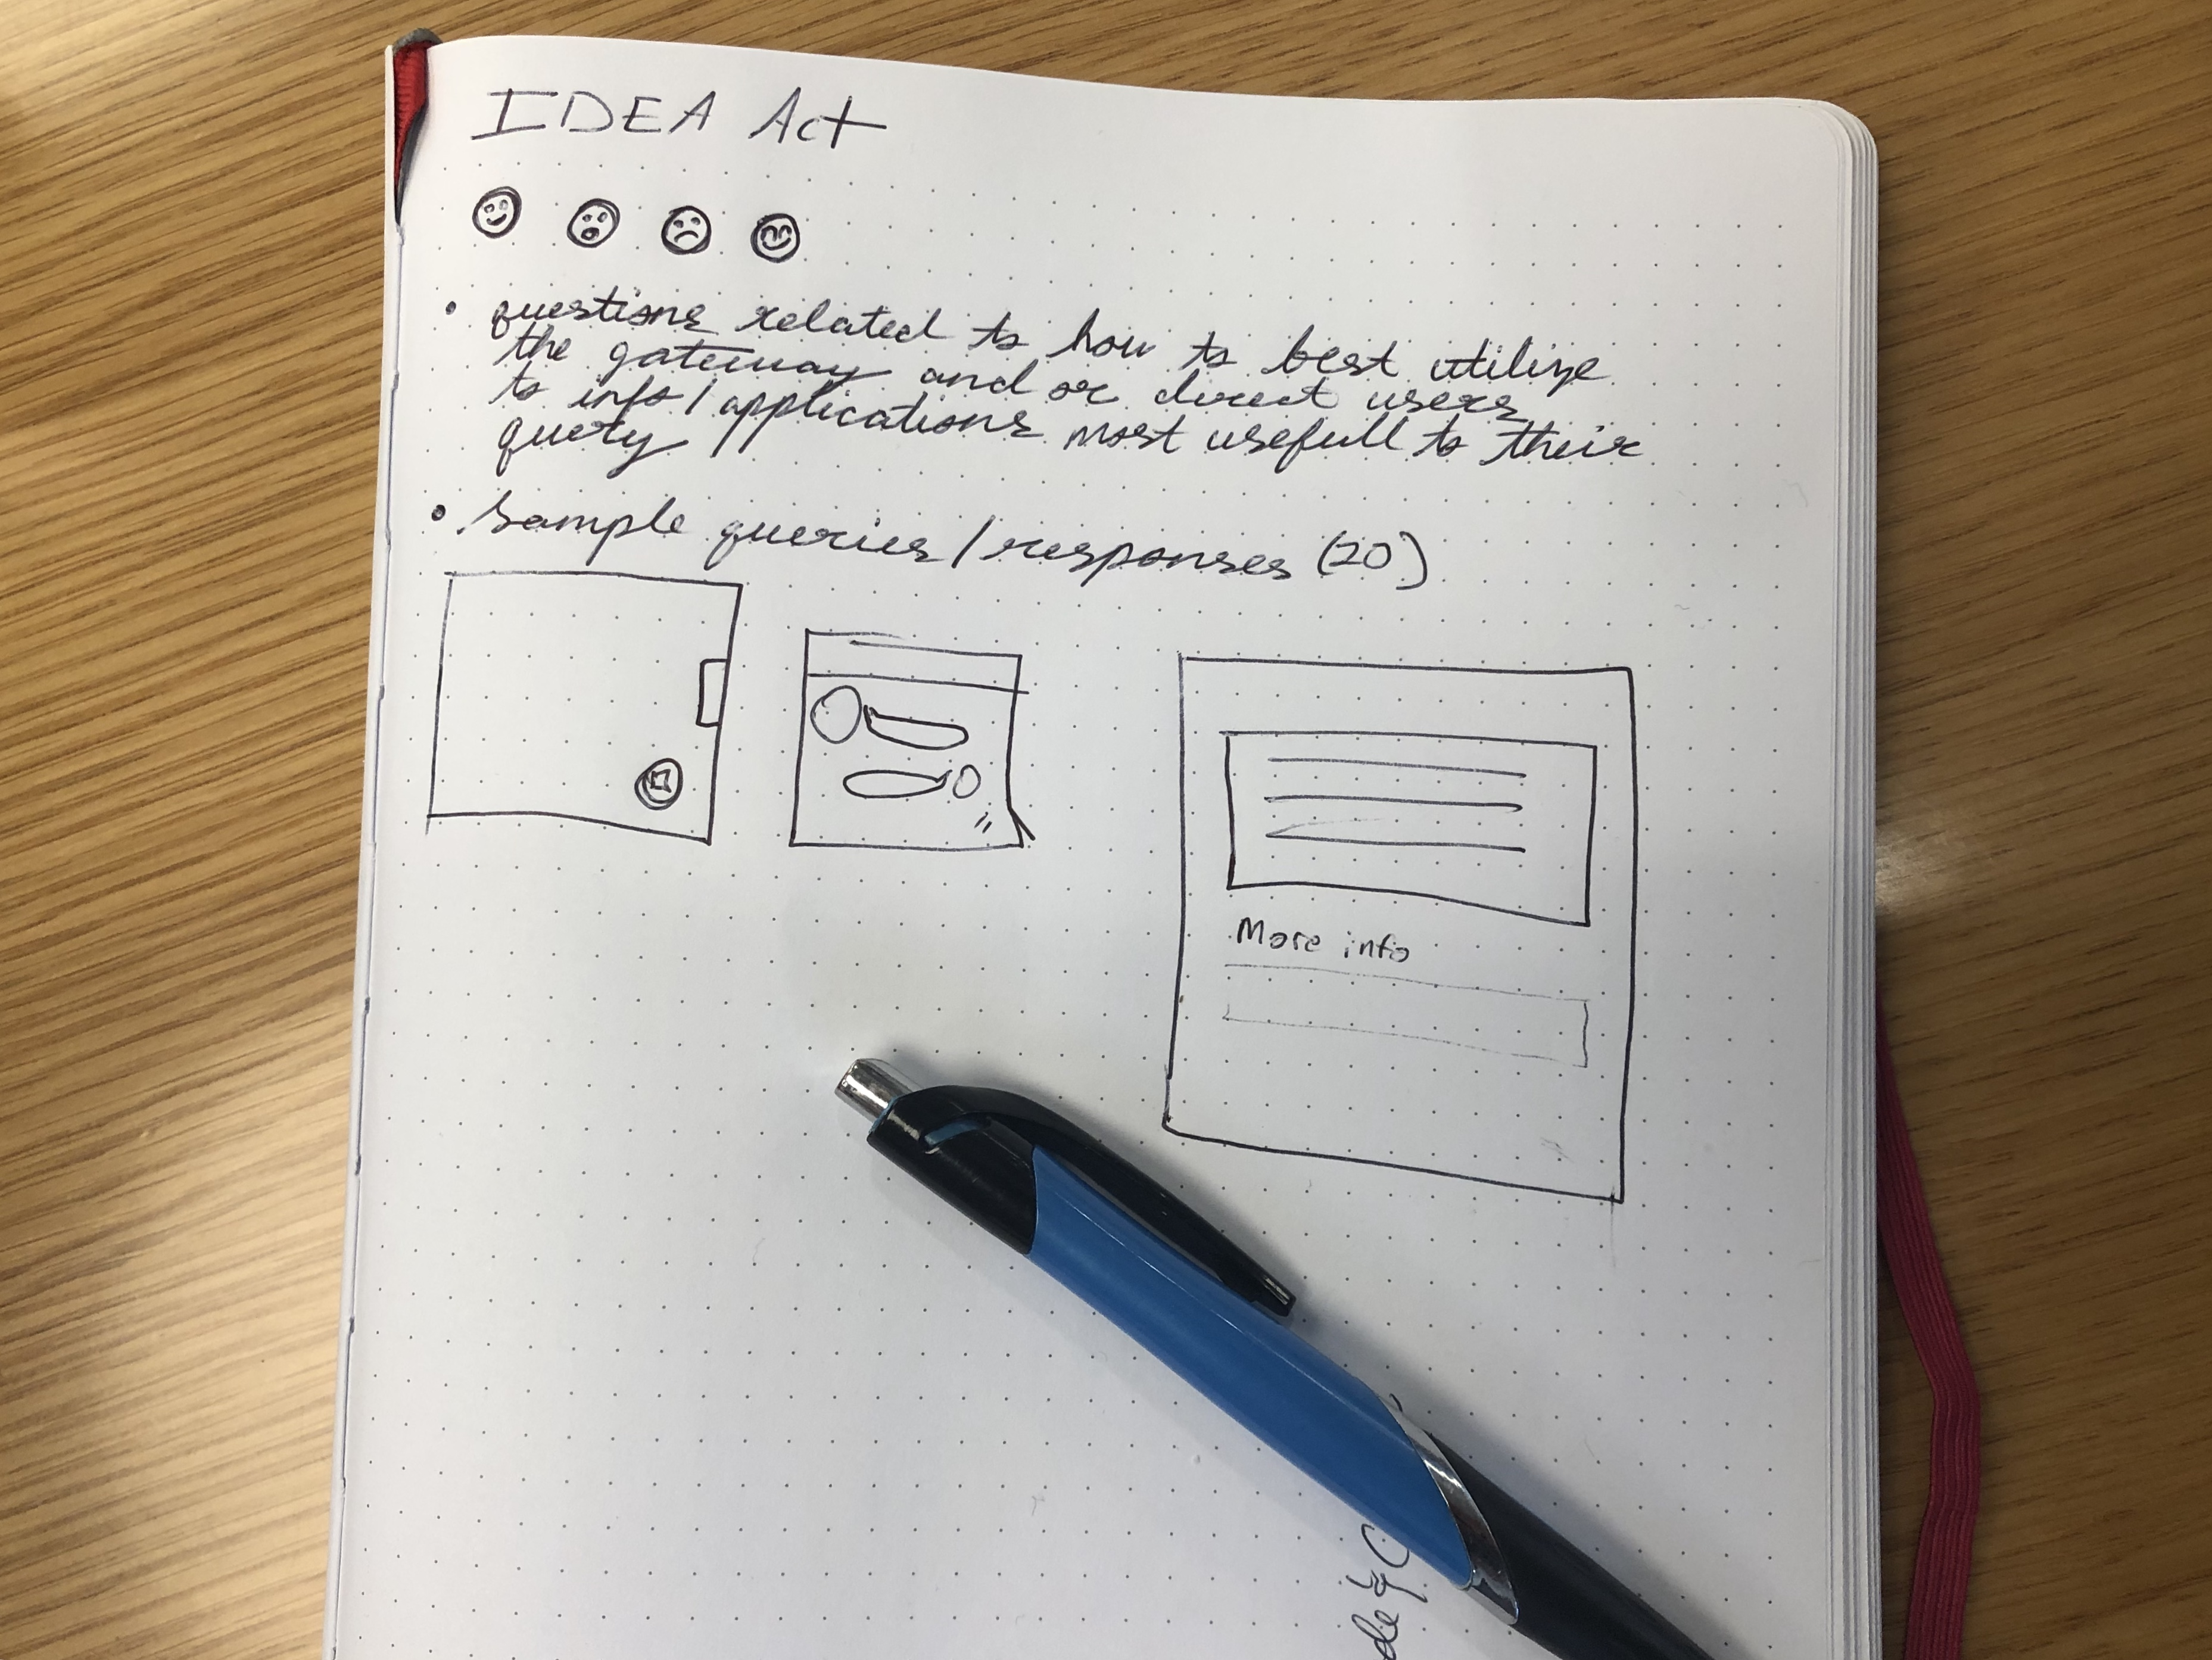 IDEA Act
• questions related to how to best utilize
the gateway and or direct users
to info/applications most usefull to their
query
• sample queries/responses (20)
More info